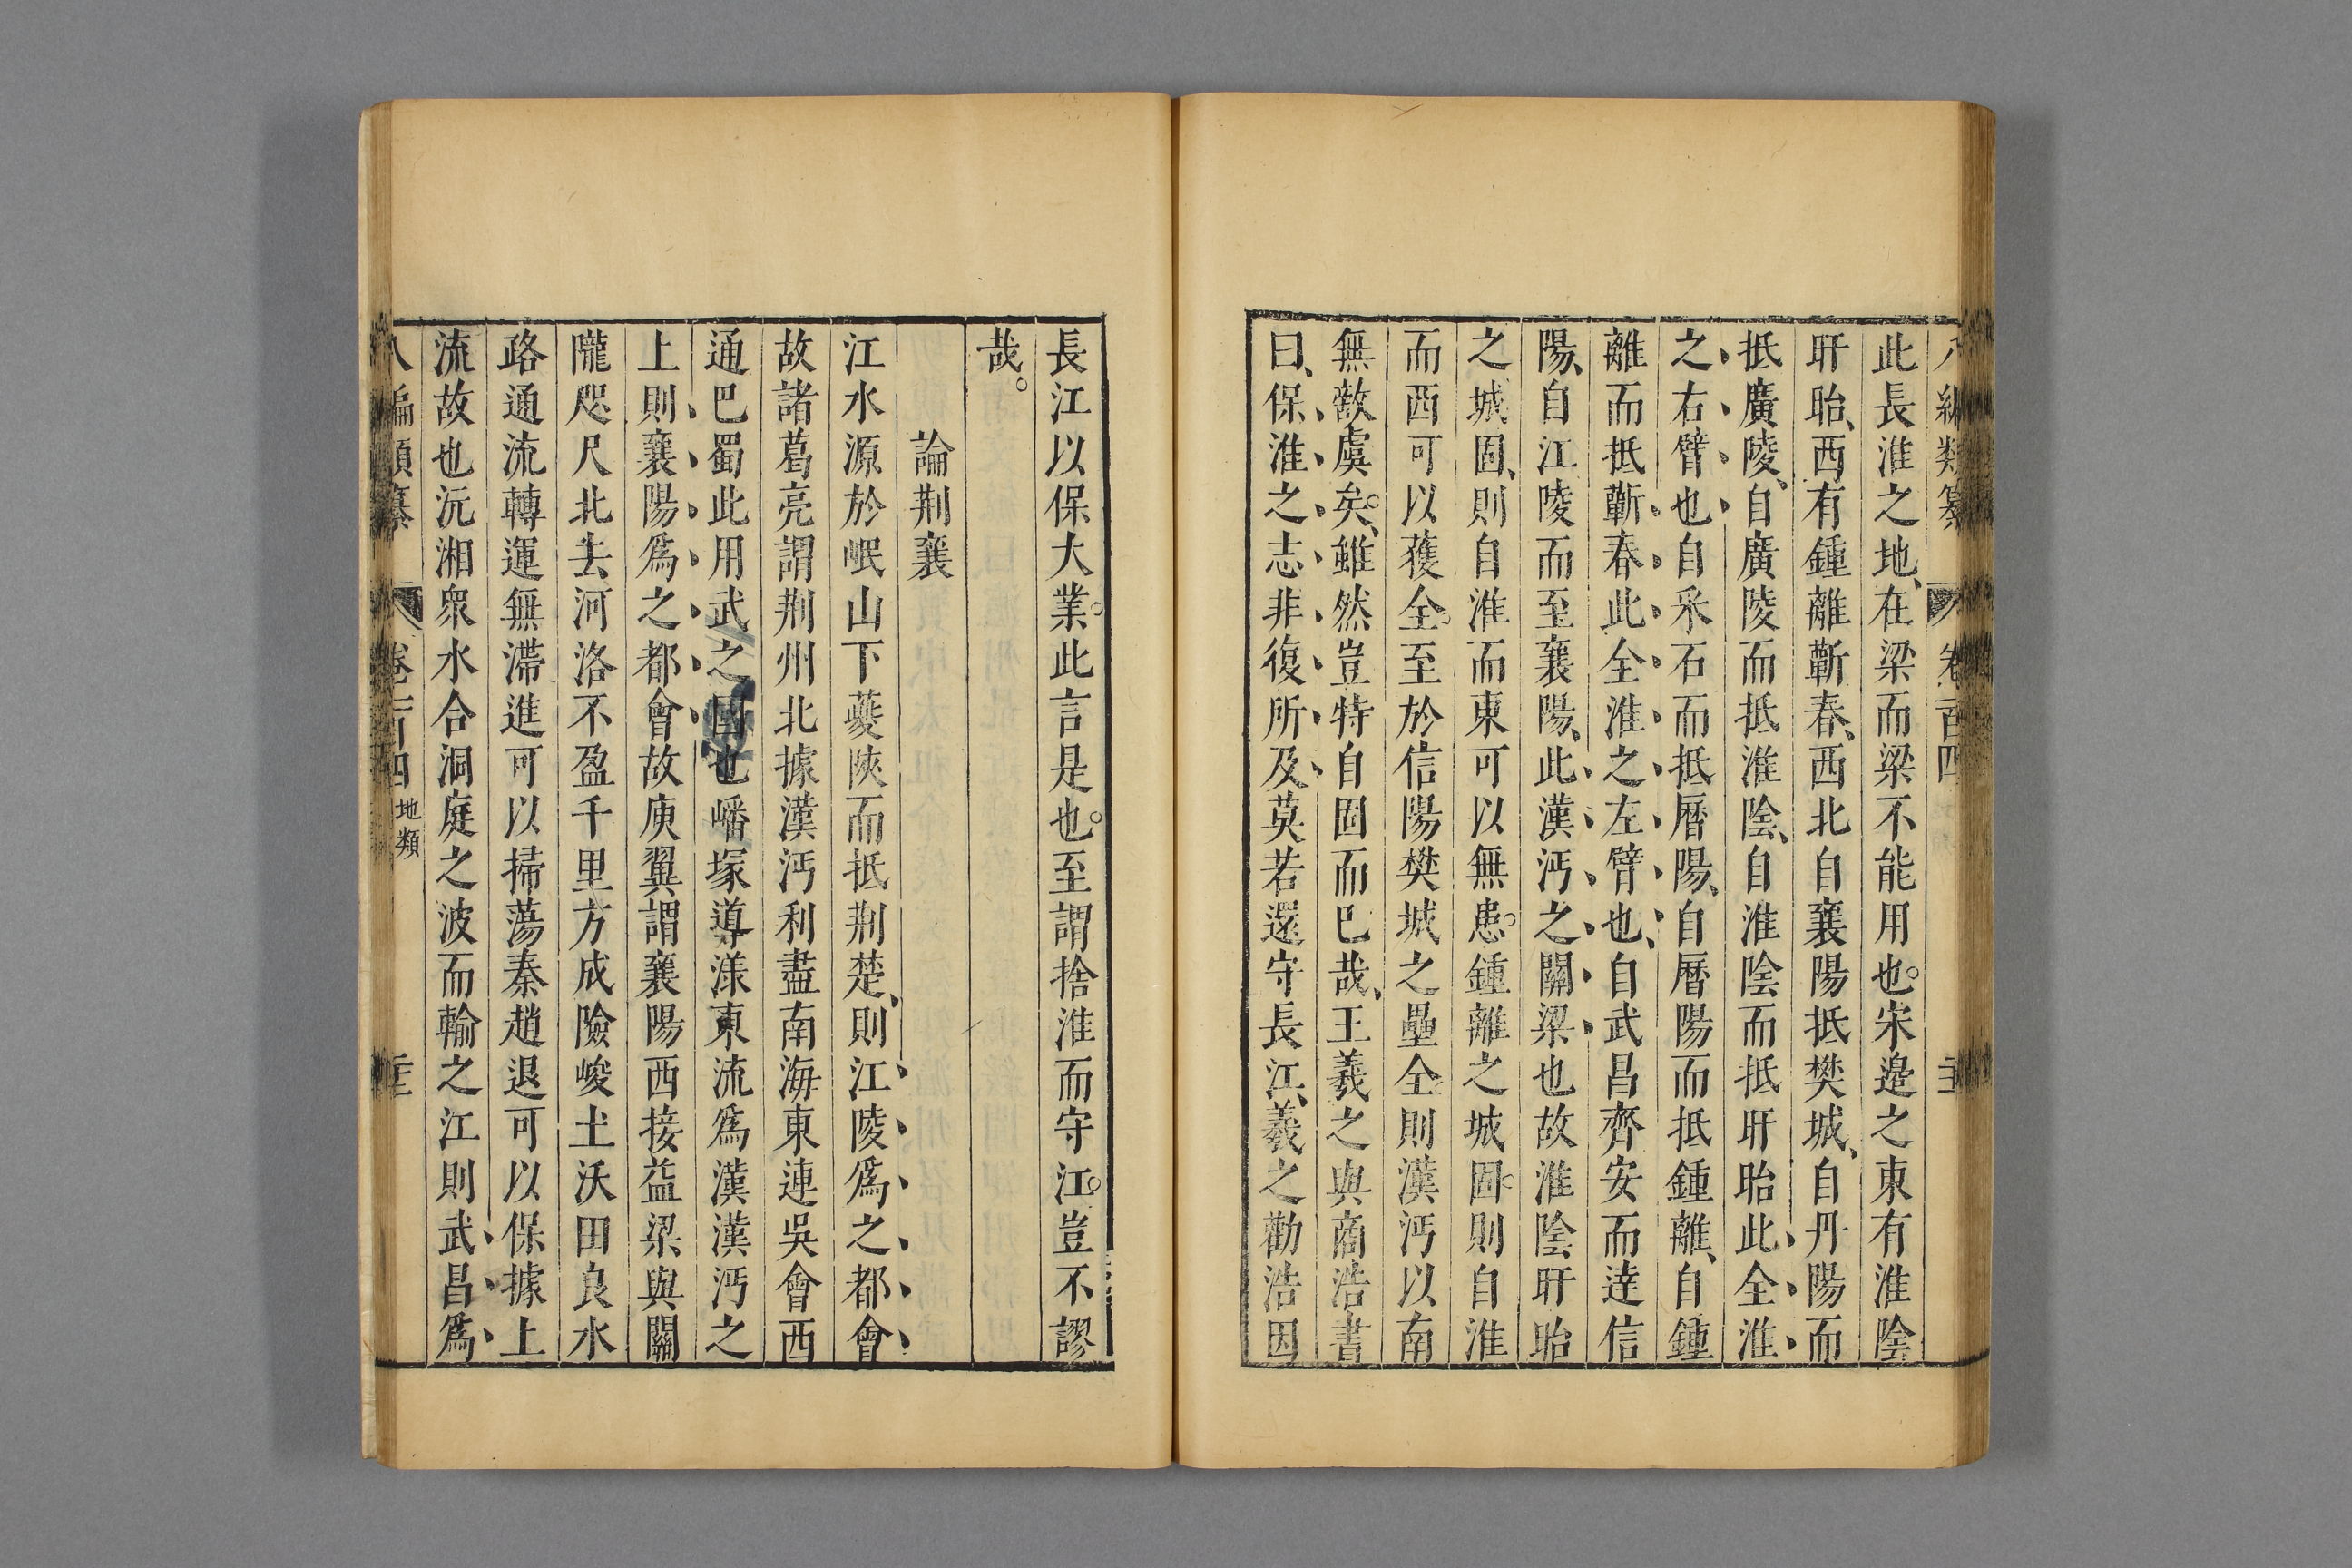 此長淮之地、在梁而梁不能用也。宋邉之東有淮陰
盱眙、西有鍾離蘄春、西北自襄陽抵樊城、自丹陽而
抵廣陵、自廣陵而抵淮陰、自淮陰而抵盱眙此全淮
之右臂也自采石而抵曆陽、自曆陽而抵鍾離、自鍾
離而抵蘄春此全淮之左臂也、自武昌齊安而逹信
陽、自江陵而至襄陽、此漢沔之關梁也故淮陰盱眙
之城固、則自淮而東可以無患。鍾離之城固。則自淮
而西可以獲全。至於信陽樊城之壘全則漢沔以南
無敵虞矣。雖然豈特自固而已哉、王羲之與商浩書
曰、保淮之志非復所及莫若還守長江、羲之勸浩因
長江以保大業。此言是也。至謂捨淮而守江。豈不謬
哉。
論荆襄
江水源於岷山下夔陜而抵荆楚、則江陵爲之都會
故諸葛亮謂荆州北據漢沔利盡南海東連吳會西
通巴蜀此用武之國也嶓塚導漾東流爲漢漢沔之
上則襄陽爲之都會故庾翼謂襄陽西接益梁與關
隴咫尺北去河洛不盈千里方成險峻土沃田良水
路通流轉運無滯進可以掃蕩秦趙退可以保據上
流故也沅湘衆水合洞庭之波而輸之江則武昌爲
八編類纂 卷一百四 地類